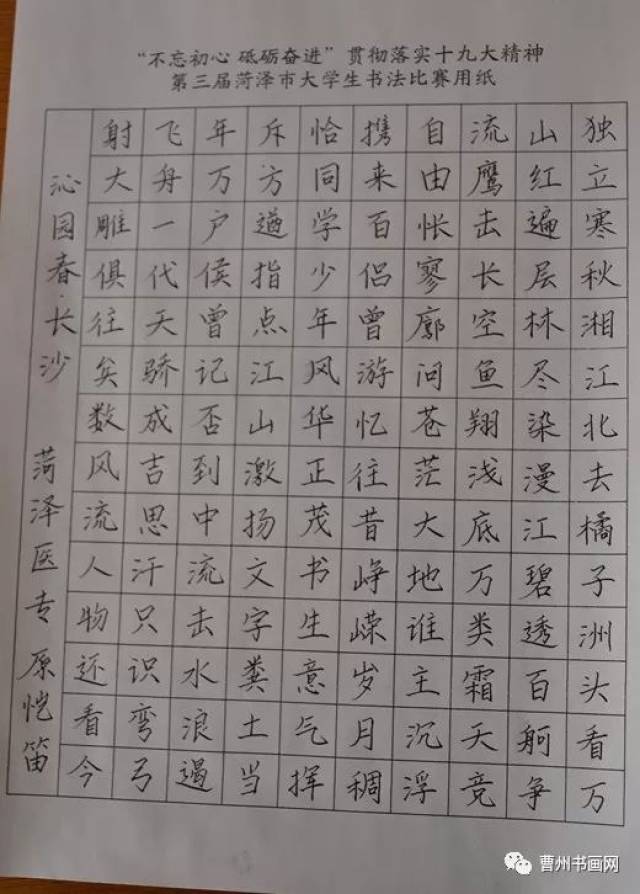 “不忘初心 砥砺奋进”贯彻落实十九大精神
第三届菏泽市大学生书法比赛用纸
独立寒秋湘江北去橘子洲头看万
山红遍层林尽染漫江碧透百舸争
流鹰击长空鱼翔浅底万类霜天竞
自由怅寥廓问苍茫大地谁主沉浮
携来百侣曾游忆往昔峥嵘岁月稠
恰同学少年风华正茂书生意气挥
斥方遒指点江山激扬文字粪土当
年万户侯曾记否到中流击水浪遏
飞舟一代天骄成吉思汗只识弯弓
射大雕俱往矣数风流人物还看今
沁园春·长沙 菏泽医专 原恺笛
曹州书画网